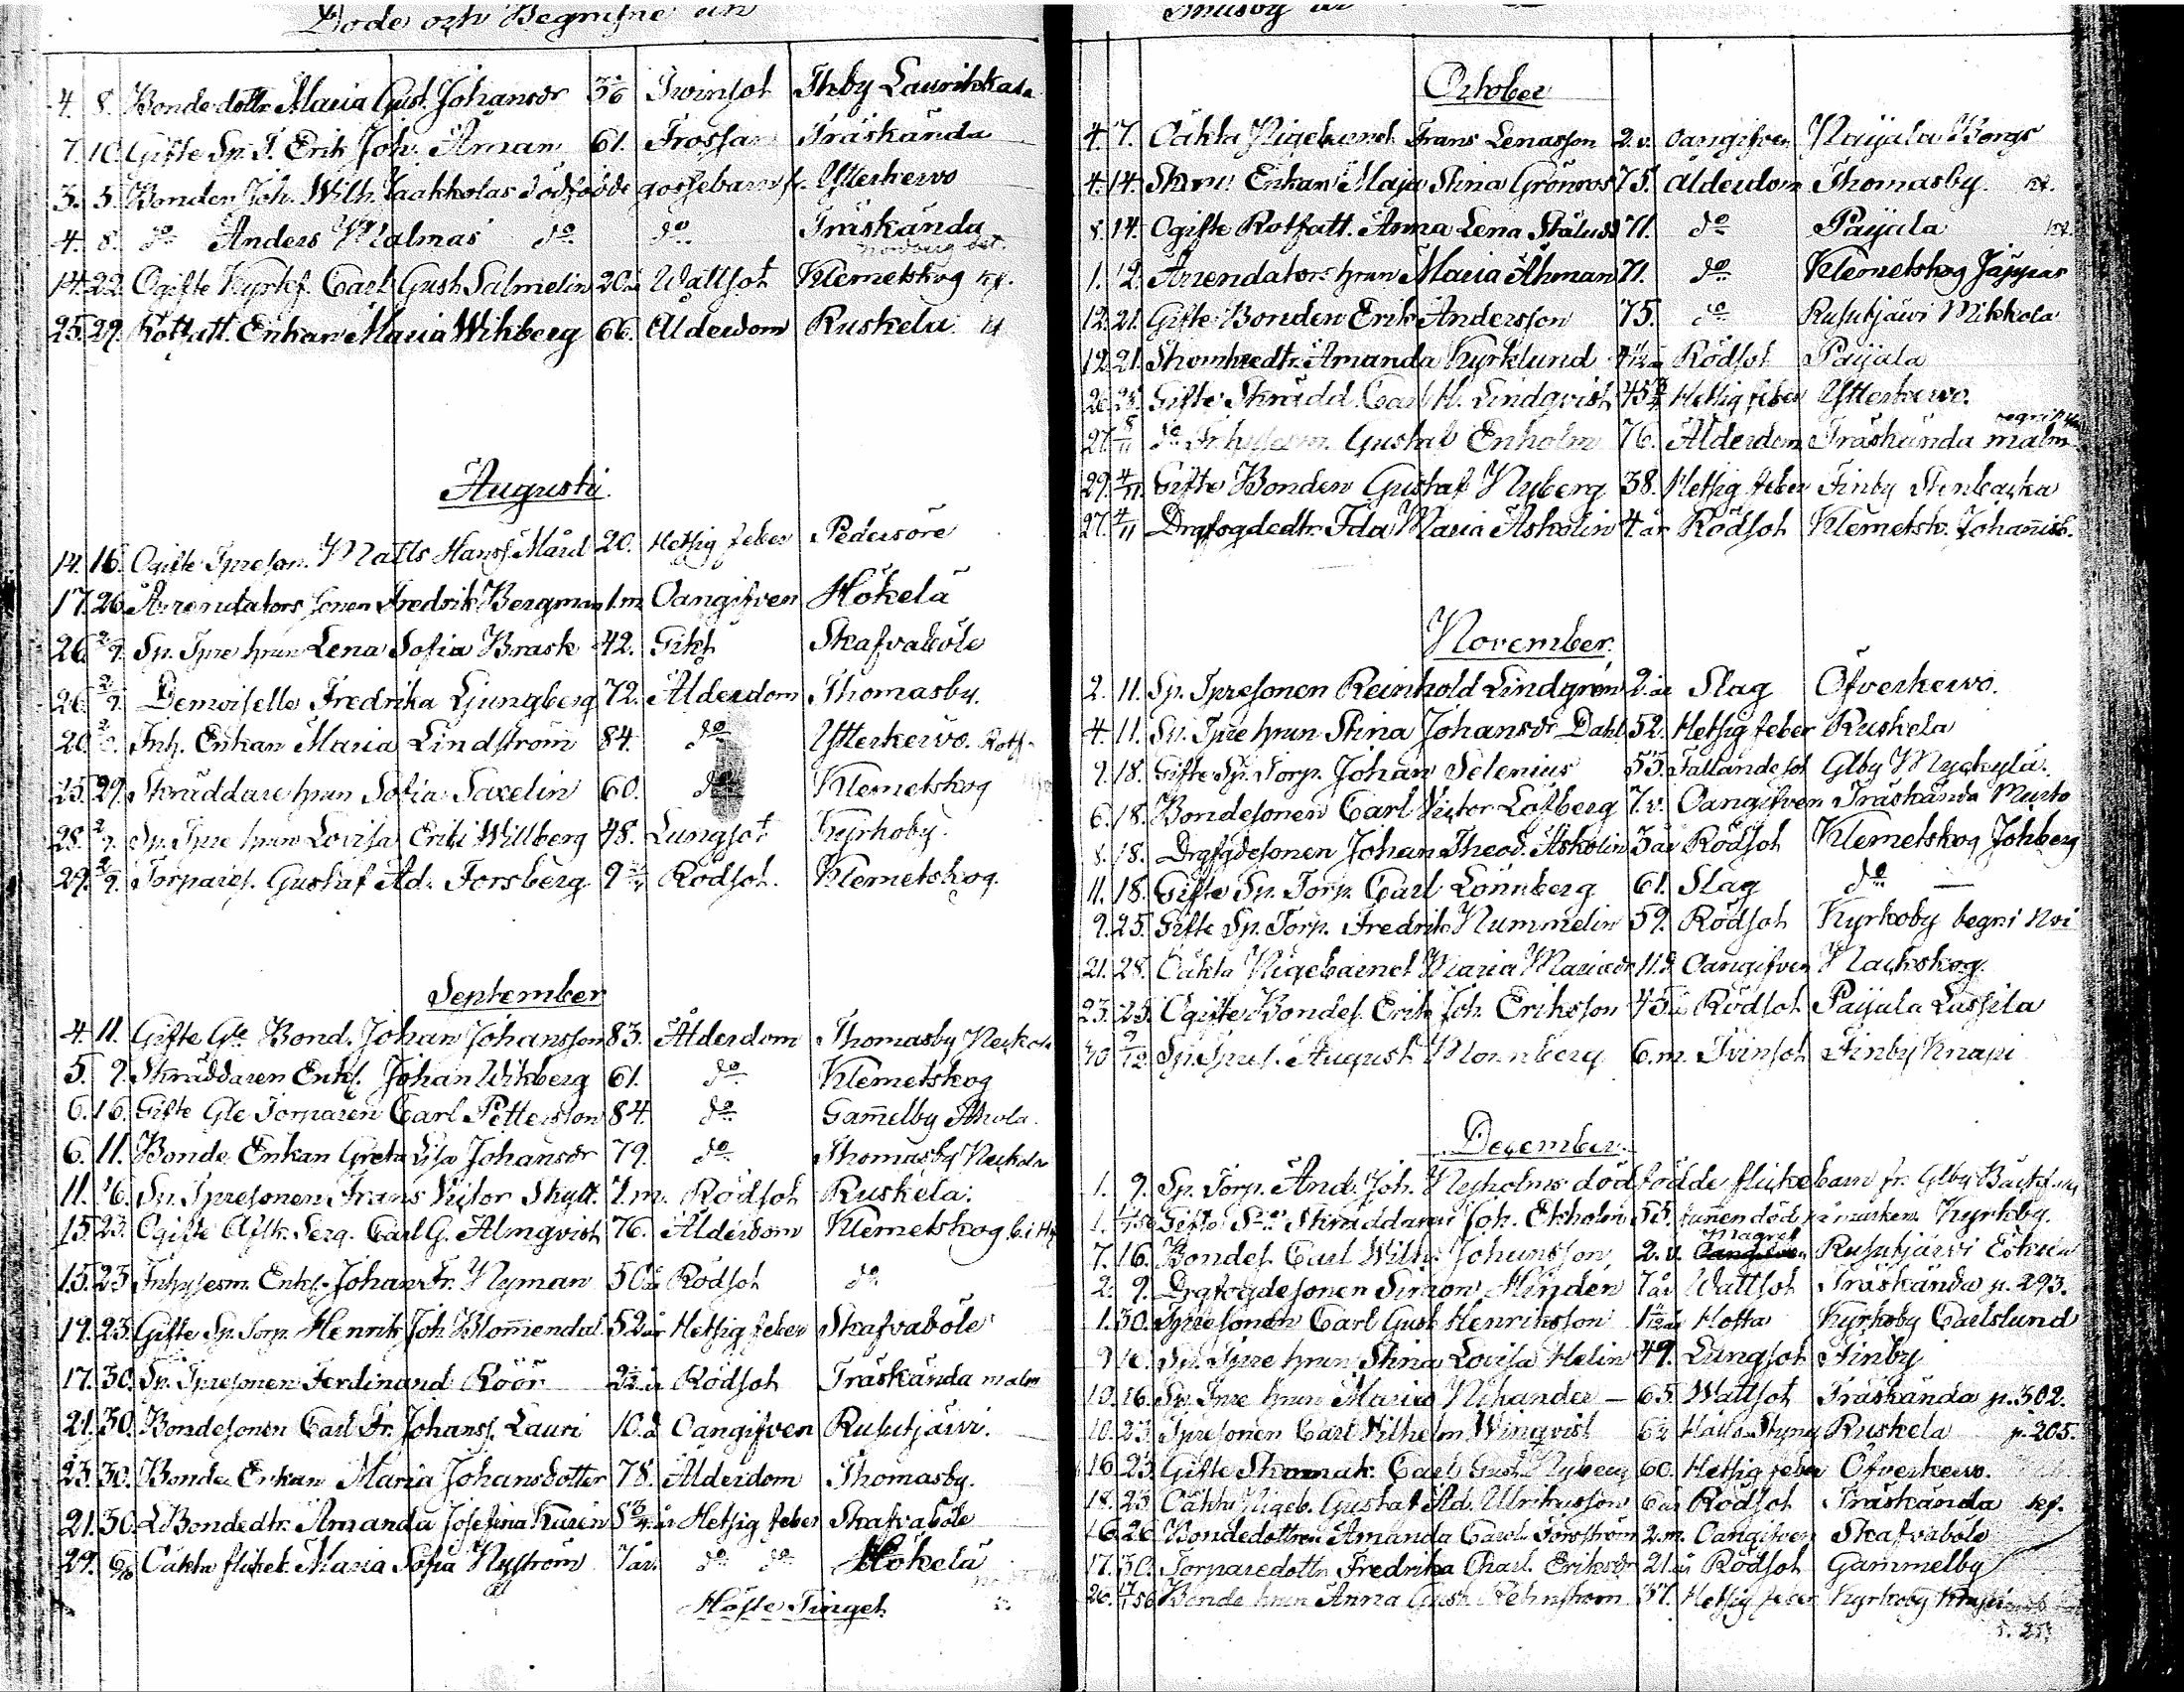 Döde och Begrafne
4. 8. Bonde dottr Maria Gust. Johansdr Twinsot Thby Laurikkala
7. 10. Gifte Sp. T. Erik Joh. Åman 61. Frossan Träskända
3. 5. Bonden Joh. Wilh. Jaakkolas dödfödde gossebarn fr. Ytterkervo
4. 8. do Anders Malmas do do Träskända
14. 22. Ogifte Kyrkf. Carl Gust Salmelin 20 Wattsot Klemetskog
25. 29. Rotfatt. Enkan Maria Wikberg 66. Ålderdom Ruskela
Augusti.
14. 16. Ogifte Spreson. Matts Hanss. Mård 20. Hetsig feber Pedersöre
17. 26. Arrendators sonen Fredrik Bergman 1.m Oangifven Hökelä
26. 2/9. Sp. Spre hrun Lena Sofia Brask 42. Gikt Skafvaböle
26. 2/9. Demoiselle Fredrika Ljungberg 72. Ålderdom Thomasby.
20. Inh. Enkan Maria Lindström 84. do Ytterkervo. Rotf.
25. 29. Skräddare hrun Sofia Saxelin 60. do Klemetskog
28. 2/9. Sp. Spre hrun Lovisa Eriki Willberg 48. Lungsot Kyrkoby.
29. 2/9. Torpares. Gustaf Ad. Forsberg 9 Rödsot. Klemetskog.
September
4. 11. Gifte Gle Bond. Johan Johansson 83. Ålderdom Thomasby
5. 9. Skräddaren Enkl. Johan Wikberg 61. do Klemetskog
6. 16. Gifte Gle Torparen Carl Pettersson 84. do Gammelby
6. 11. Bonde Enkan Greta Lisa Johansdr 79. do Thomasby
11. 16. Sp. Spresonen Frans Victor Skytt. 7.m. Rödsot Ruskela.
15. 23. Ogifte Afsk. Serg. Carl G. Almqvist 76. Ålderdom Klemetskog
15. 23 Inhysesm. Enkl. Johan Fr. Nyman 50 år Rödsot do
19. 23. Gifte Sp. Torp. Henrik Joh. Blommendal 52 år Hetsig feber Skafvaböle
17. 30. Sp. Spresonen Ferdinand Röör Rödsot Träskända malm
21. 30. Bondesonen Carl Fr. Johanss. Lauri 10.d Oangifven Rusutjärvi.
23. 30. Bonde Enkan Maria Johansdotter 78. Ålderdom Thomasby.
21. 30. Bondedtr. Amanda Josefina Karin Hetsig feber Skafvaböle
29. 6/10 Oäkta flickeb. Maria Sofia Nyström 7 år. do do Hökelä
Höste Tinget
October
4. 7. Oäkta Pigebarnet Frans Lenasson 2.v. Oangifven Paijala
4. 14. Enkan Maja Stina Grönroos 75. Ålderdom Thomasby.
8. 14. Ogifte Rotfatt. Anna Lena 71. do Paijala
1. 12. Arrendators hrun Maria Åhman 71. do Klemetskog
12. 21. Gifte Bonden Erik Andersson 75. do Rusutjärvi Mikkola
19. 21. Amanda Kyrklund Rödsot Paijala
Gifte Skrädd. Carl H. Lindqvist 45 Hetsig feber Ytterkervo.
27. do Inhysesm. Gustaf Enholm 76. Ålderdom Träskända malm
29. 4/11 Gifte Bonden Gustaf Nyberg 38. Hetsig feber Finby Stenbacka
27. 4/11 Drgfogdedtr. Ida Maria Askolin 4 år Rödsot Klemetsk. Johannisb.
November.
2. 11. Sp. Spresonen Reinhold Lindgren 2. år Slag Öfverkervo.
4. 11. Sp. Spre hrun Stina Johansdr Dahl 52. Hetsig feber Ruskela
9. 18. Gifte Sp. Torp. Johan Selenius 55. Fallandesot Glby Myckylä.
6. 18. Bondesonen Carl Victor Löfberg 7.v. Oangifven Träskända
8. 18. Drgfgdesonen Johan Theod. Askolin 3 år Rödsot Klemetskog Johberg
11. 18. Gifte Sp. Torp. Carl Lönnberg 61. Slag do
9. 25. Gifte Sp. Torp. Fredrik Nummelin 59. Rödsot Kyrkoby
21. 28. Oäkta Pigebarnet Maria Mariadr 11.d. Oangifven Nackskog.
23. 25. Ogifte Bondes. Erik Joh. Eriksson Rödsot Paijala Lassila
30 9/12 Sp. Spres. August 6.m. Tvinsot Finby Knapi
December.
1. 9. Sp. Torp. And. Joh. Nyholms dödfödde flickebarn fr. Glby
Gifte Skräddaren Joh. Ekholm 55. funnen död på marken Kyrkby.
Magref
7. 16. Bondes. Carl Wilh. Johansson 2.v. Rusutjärvi
2. 9. Drgfogdesonen Simon Hindén 7 år Wattsot Träskända p. 293.
1. 30. Spresonen Carl Gust Henriksson Hosta Kyrkoby Carlslund
9 16. Sp. Spre hrun Stina Lovisa Helin 49. Lungsot Finby
10. 16. Sp. Spre hrun Maria Nihander 65 Wattsot Träskända p. 302.
10. 23 Spresonen Carl Vilhelm Winqvist Ruskela p. 205.
16 23. Gifte Carl Gust. Nyberg 60. Hetsig feber Öfverkervo.
18. 23. Oäkta Pigeb. Gustaf Ad. Ulrikasson 6 år Rödsot Träskända
16. 26 Bondedottren Amanda Carol. Forsström 2.m. Oangifven Skafvaböle
17. 30. Torparedottr Fredrika Charl. Eriksdr 21. år Rödsot Gammelby
26. Bonde hrun Anna Gust. 37. Hetsig feber Kyrkoby